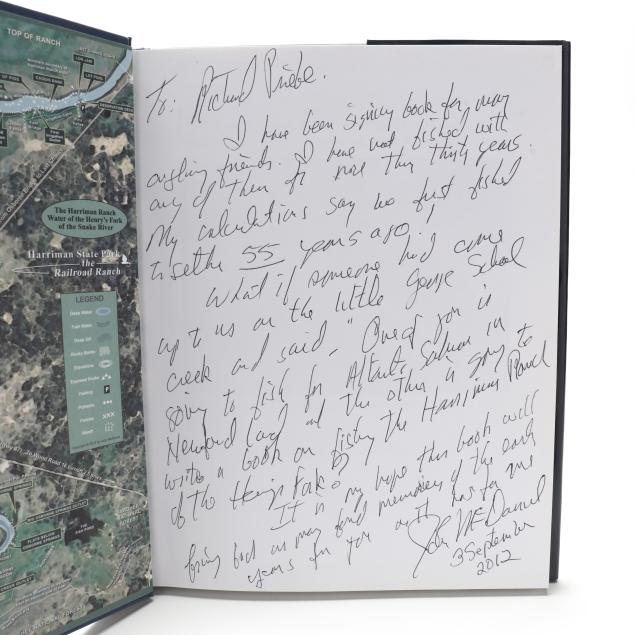 TOP OF RANCH
The Harriman Ranch
Water of the Henry's Fork
of the Snake River
Harriman State Park
the
Railroad Ranch
LEGEND
Deep Water
Parking
Fences
To: Richard Priebe.
I have been signing book for many
angling friends. I have not fished with
any of them for more than thirty years.
My calculations say we first fished
together 55 years ago!
What if someone had come
up to us on the little George School
creek and said, "One of you is
going to fish for Atlantic Salmon in
Newfound land and the other is going to
write a book on fishing the Harriman Ranch
of the Henry's Fork?
It is my hope this book will
bring back as many fond memories of the early
years for you as it has for me
John McDaniel
3 September
2012